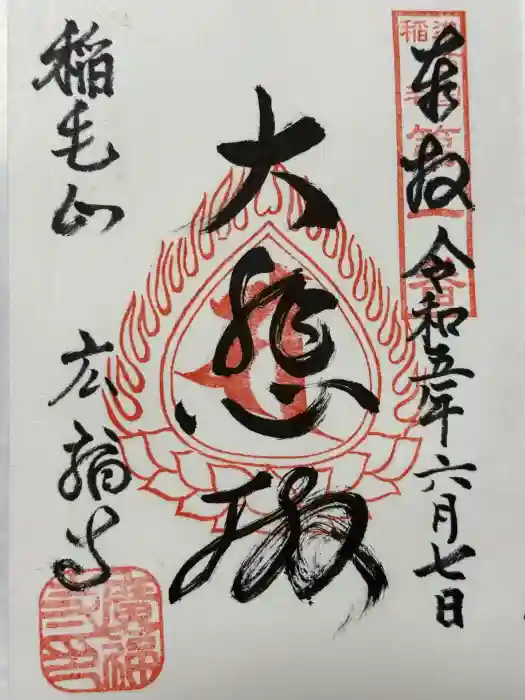 奉拝 令和五年六月七日
大悲殿
稲毛山
広福寺
廣福寺